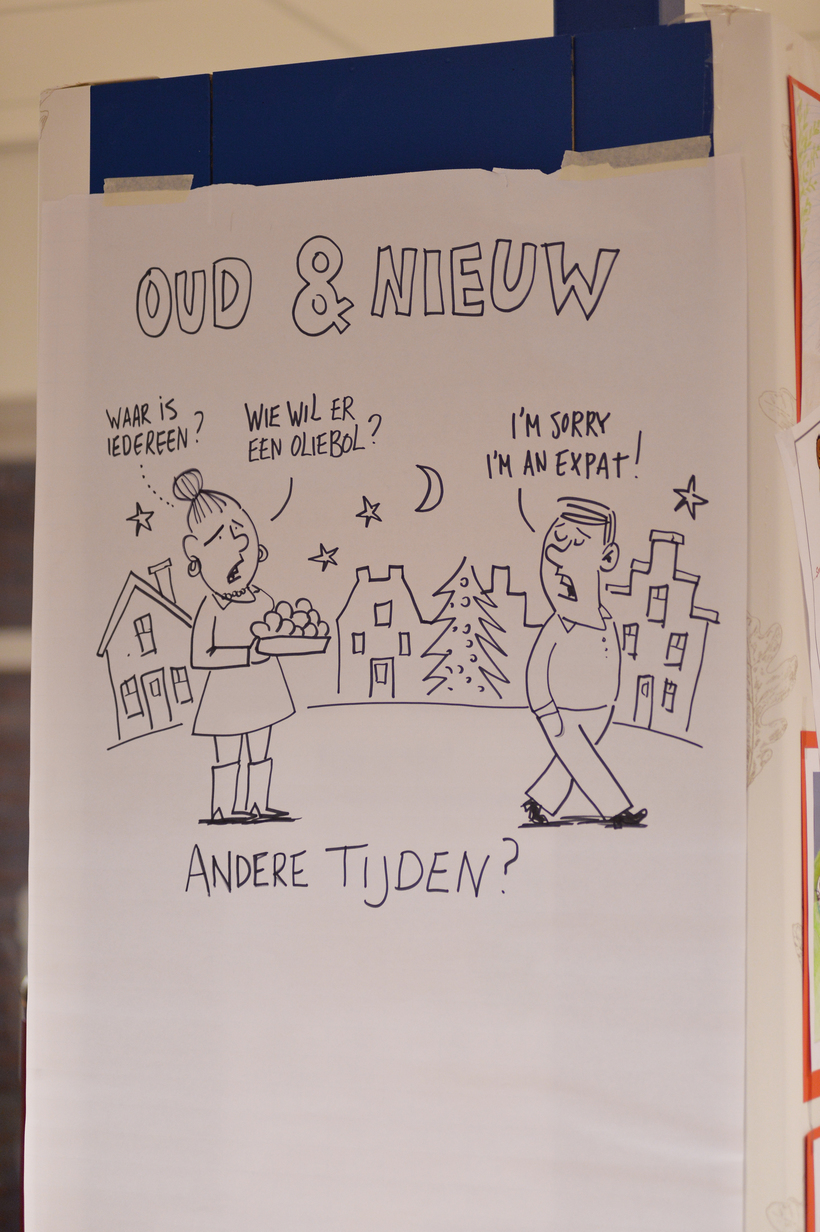 OUD & NIEUW
WAAR IS
IEDEREEN?
WIE WIL ER
EEN OLIEBOL?
I'M SORRY
I'M AN EXPAT!
ANDERE TIJDEN?